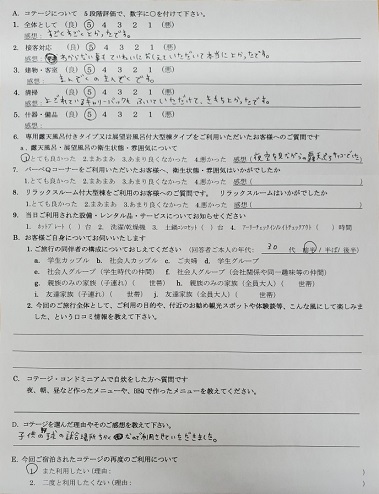 A. コテージについて 5段階評価で、数字に○を付けて下さい。
1. 全体として (良) 5 4 3 2 1 (悪)
感想: すごくすごくよかったです。
2. 接客対応 (良) 5 4 3 2 1 (悪)
感想: わからない事ていねいにおしえていただいて本当によかったです。
3. 建物・客室 (良) 5 4 3 2 1 (悪)
感想:
4. 清掃 (良) 5 4 3 2 1 (悪)
感想: よごれているキャリーバックもふいていただけて、きもちよかったです。
5. 什器・備品 (良) 5 4 3 2 1 (悪)
感想:
6. 専用露天風呂付きタイプ又は展望岩風呂付大型棟タイプをご利用いただいたお客様へのご質問です
a. 露天風呂・展望風呂の衛生状態・雰囲気について
1.とても良かった 2.まあまあ 3.あまり良くなかった 4.悪かった 感想(夜空を見ながらの露天
7. バーベQコーナーをご利用いただいたお客様へ、衛生状態・雰囲気はいかがでしたか
1.とても良かった 2.まあまあ 3.あまり良くなかった 4.悪かった 感想( )
8. リラックスルーム付大型棟をご利用いただいたお客様へのご質問です。 リラックスルームはいかがでしたか
1.とても良かった 2.まあまあ 3.あまり良くなかった 4.悪かった 感想( )
9. 当日ご利用された設備・レンタル品・サービスについてお知らせください
1. ホットプレート ( ) 台 2. 洗濯/乾燥機 3. 土鍋 ( ) 台 4. アーリーチェックイン(レイトチェックアウト) ( ) 時間
B. お客様ご自身についてお伺いいたします
1. ご旅行の同伴者の構成についておしえてください (回答者ご本人の年代: 30 代 前半/半ば/後半)
a. 学生カップル b. 社会人カップル c. ご夫婦 d. 学生グループ
e. 社会人グループ (学生時代の仲間) f. 社会人グループ (会社関係や同一趣味等の仲間)
g. 親族のみの家族 (子連れ) ( 世帯) h. 親族のみの家族 (全員大人) ( 世帯)
i. 友達家族 (子連れ) ( 世帯) j. 友達家族 (全員大人) ( 世帯)
2. 今回のご旅行全体として、ご利用の目的や、付近のお勧め観光スポットや体験談等、こんな風にして楽しみました、という口コミ情報を教えて下さい。
C. コテージ・コンドミニアムで自炊をした方へ質問です
夜、朝、昼など作ったメニューや、BBQで作ったメニューを教えてください。
D. コテージを選んだ理由やそのご感想を教えて下さい。
子供の野球の試合場所ちかくなので利用させていただきました。
E. 今回ご宿泊されたコテージの再度のご利用について
1. また利用したい (理由: )
2. 二度と利用したくない (理由: )